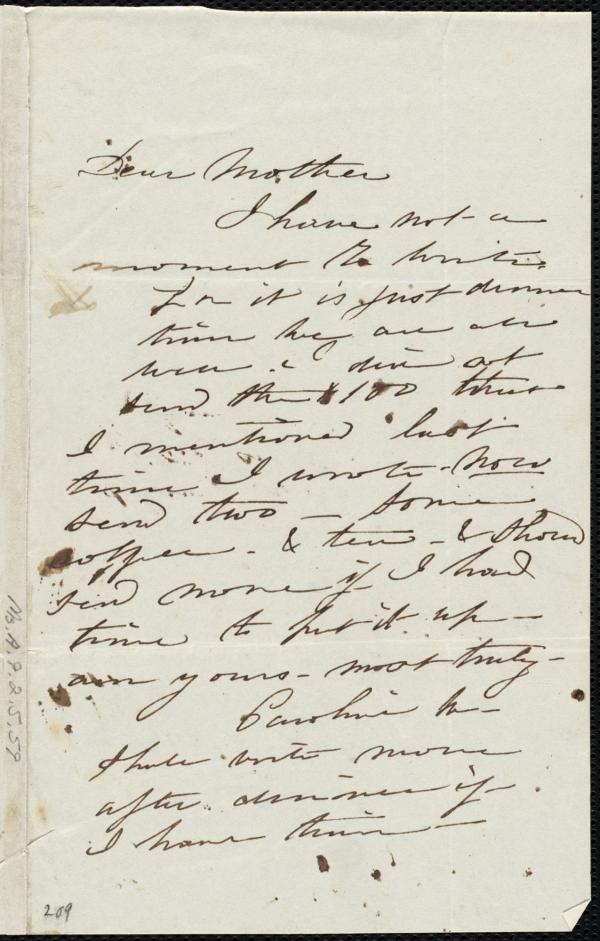 Dear Mother
I have not a
moment to write
For it is just dinner
time we are all
well. I did not
send the $100 that
I mentioned last
time I wrote - now
send two - some
coffee - & tea - & should
send more if I had
time to put it up -
am yours - most truly -
Caroline W -
shall write more
after dinner if
I have time -
209
Ms.A.9.2.5.59